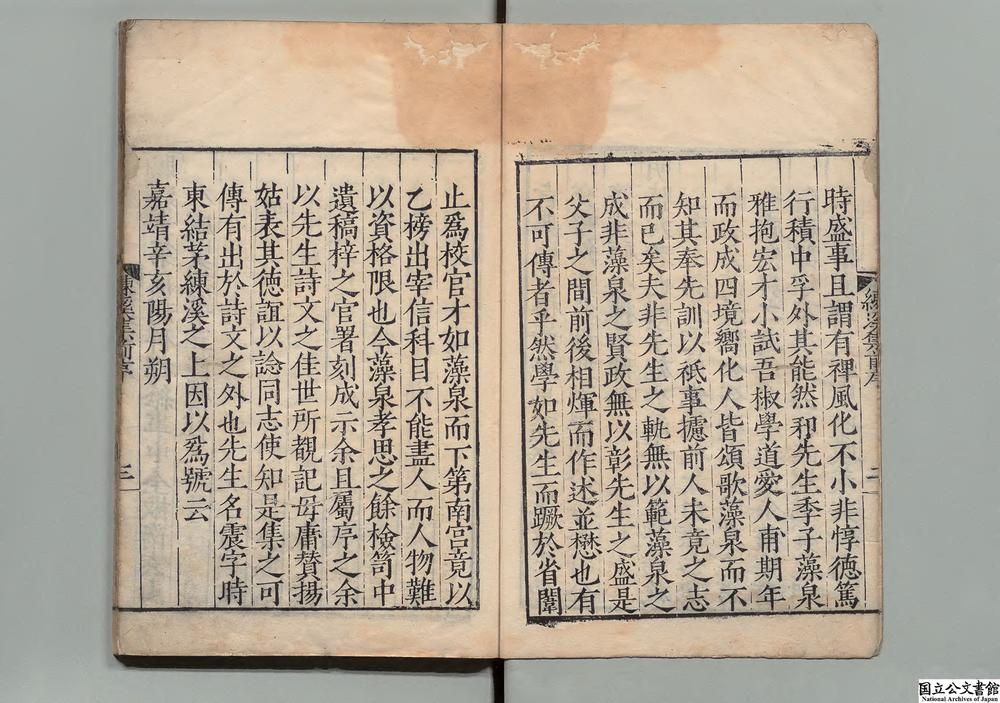 時盛事且謂有裨風化不小非惇德篤
行積中孚外其能然邪先生季子藻泉
雅抱宏才小試吾椒學道愛人甫期年
而政成四境嚮化人皆頌歌藻泉而不
知其奉先訓以祇事攄前人未竟之志
而已矣夫非先生之軌無以範藻泉之
成非藻泉之賢政無以彰先生之盛是
父子之間前後相煇而作述並懋也有
不可傳者乎然學如先生而蹶於省闈
練溪集前序
二
止爲校官才如藻泉而下第南宫竟以
乙榜出宰信科目不能盡人而人物難
以資格限也今藻泉孝思之餘檢笥中
遺稿梓之官署刻成示余且屬序之余
以先生詩文之佳世所覩記毋庸贊揚
姑表其德誼以諗同志使知是集之可
傳有出於詩文之外也先生名震字時
東結茅練溪之上因以爲號云
嘉靖辛亥陽月朔
練溪集前序
三
国立公文書館
National Archives of Japan